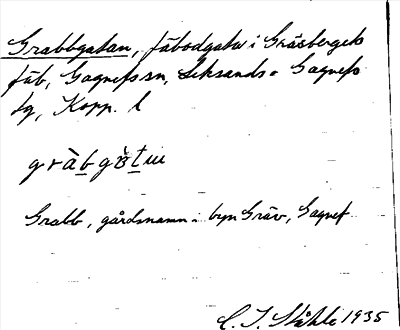 Grabbgatan, fäbodgata i Gräsbergets
fäb, Gagnefs sn, Leksands o Gagnefs
tg, Kopp. l
gràbgàtɯ
Grabb, gårdsnamn i byn Gräv, Gagnef
C. I. Ståhle 1935